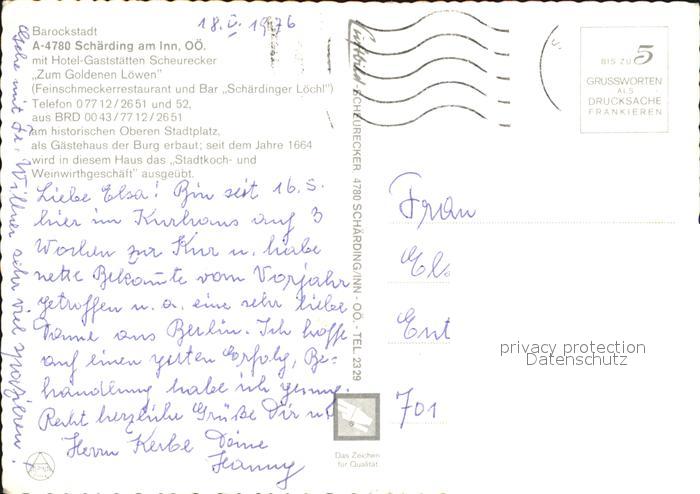 18.5. 1976
Barockstadt
A-4780 Schärding am Inn, OÖ.
mit Hotel-Gaststätten Scheurecker
„Zum Goldenen Löwen"
(Feinschmeckerrestaurant und Bar „Schärdinger Löchl")
Telefon 0 77 12 / 26 51 und 52,
aus BRD 00 43 / 77 12 / 26 51
am historischen Oberen Stadtplatz,
als Gästehaus der Burg erbaut; seit dem Jahre 1664
wird in diesem Haus das „Stadtkoch- und
Weinwirthgeschäft" ausgeübt.
Liebe Elsa! Bin seit 16.5.
hier im Kurhaus auf 3
Wochen zur Kur u. habe
nette Bekannte vom Vorjahr
getroffen u. a. eine sehr liebe
Dame aus Berlin. Ich hoffe
auf einen guten Erfolg, Be-
handlung habe ich genug.
Recht herzliche Grüße Dir u.
Herrn Kerbe Deine
Hanny
Gehe mit Fr. Willner sehr viel spazieren.
Luftbild-SCHEURECKER 4780 SCHÄRDING/INN - OÖ. - TEL. 2329
BIS ZU 5
GRUSSWORTEN
ALS
DRUCKSACHE
FRANKIEREN
Frau
Els
Ent
701
privacy protection
Datenschutz
Das Zeichen
für Qualität